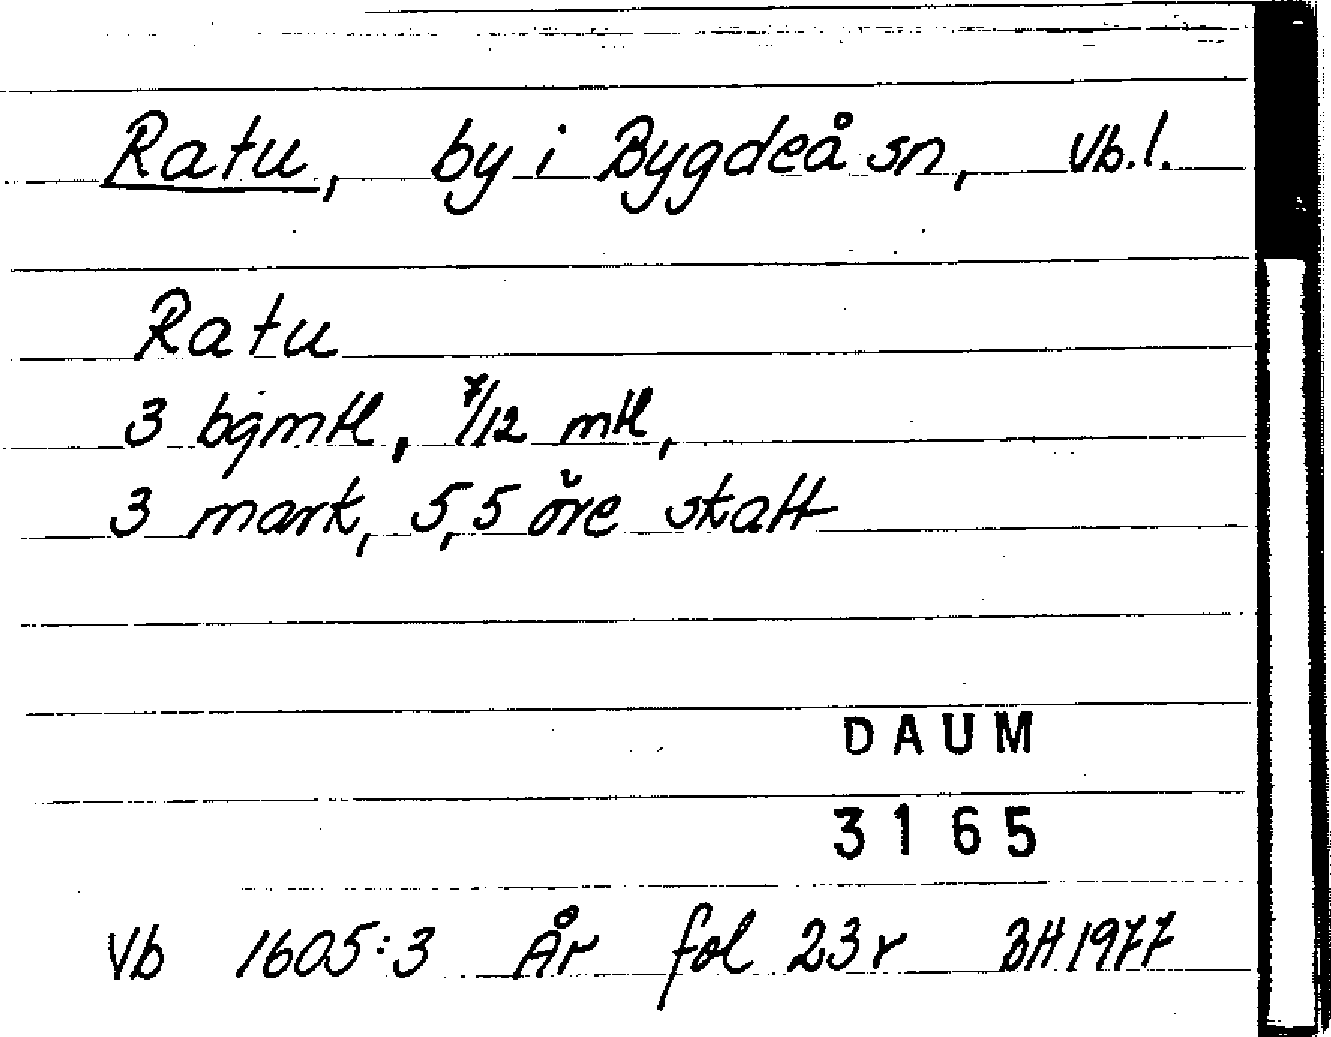 Ratu, by i Bygdeå sn, Vb.l.
Ratu
3 bgmtl, 7/12 mtl,
3 mark, 5,5 öre skatt
DAUM
3165
Vb 1605:3 År fol 23r BH 1977